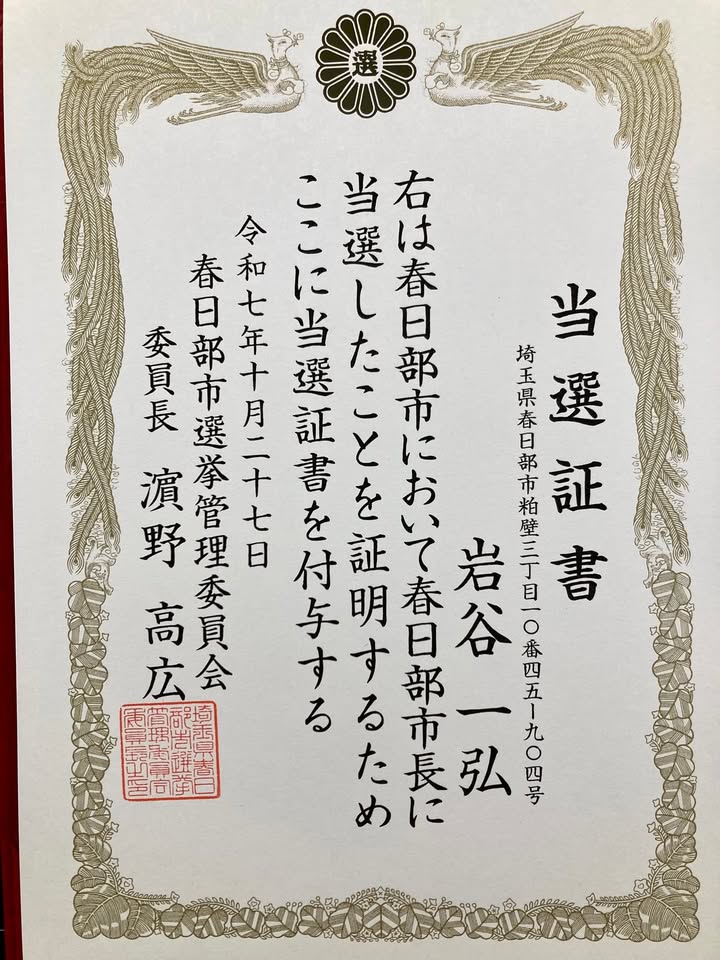 選
当選証書
埼玉県春日部市粕壁三丁目一〇番四五ー九〇四号
岩谷一弘
右は春日部市において春日部市長に
当選したことを証明するため
ここに当選証書を付与する
令和七年十月二十七日
春日部市選挙管理委員会
委員長 濵野高広
埼玉県春日
部市選挙
管理委員会
委員長之印